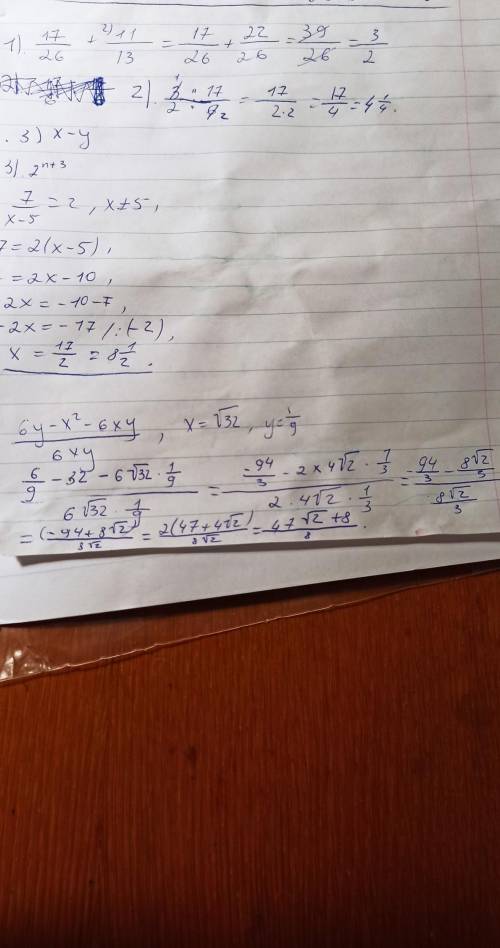 1). 17/26 + ²⁾11/13 = 17/26 + 22/26 = 39/26 = 3/2
2). 3/2 · 17/6₂ = 17/2·2 = 17/4 = 4 1/4.
. 3) x-y
3) 2ⁿ⁺³
7/x-5 = 2, x≠5,
7 = 2(x-5),
= 2x-10,
2x = -10-7,
-2x = -17 /:(-2),
x = 17/2 = 8 1/2.
6y-x²-6xy/6xy, x=√32, y=1/9
6/9 - 32 - 6√32 · 1/9 / 6√32 · 1/9 = -94/3 - 2×4√2 · 1/3 / 2·4√2 · 1/3 = -94/3 - 8√2/3 / 8√2/3
= (-94+8√2)/8√2 = 2(47+4√2)/8√2 = 47√2+8/8.